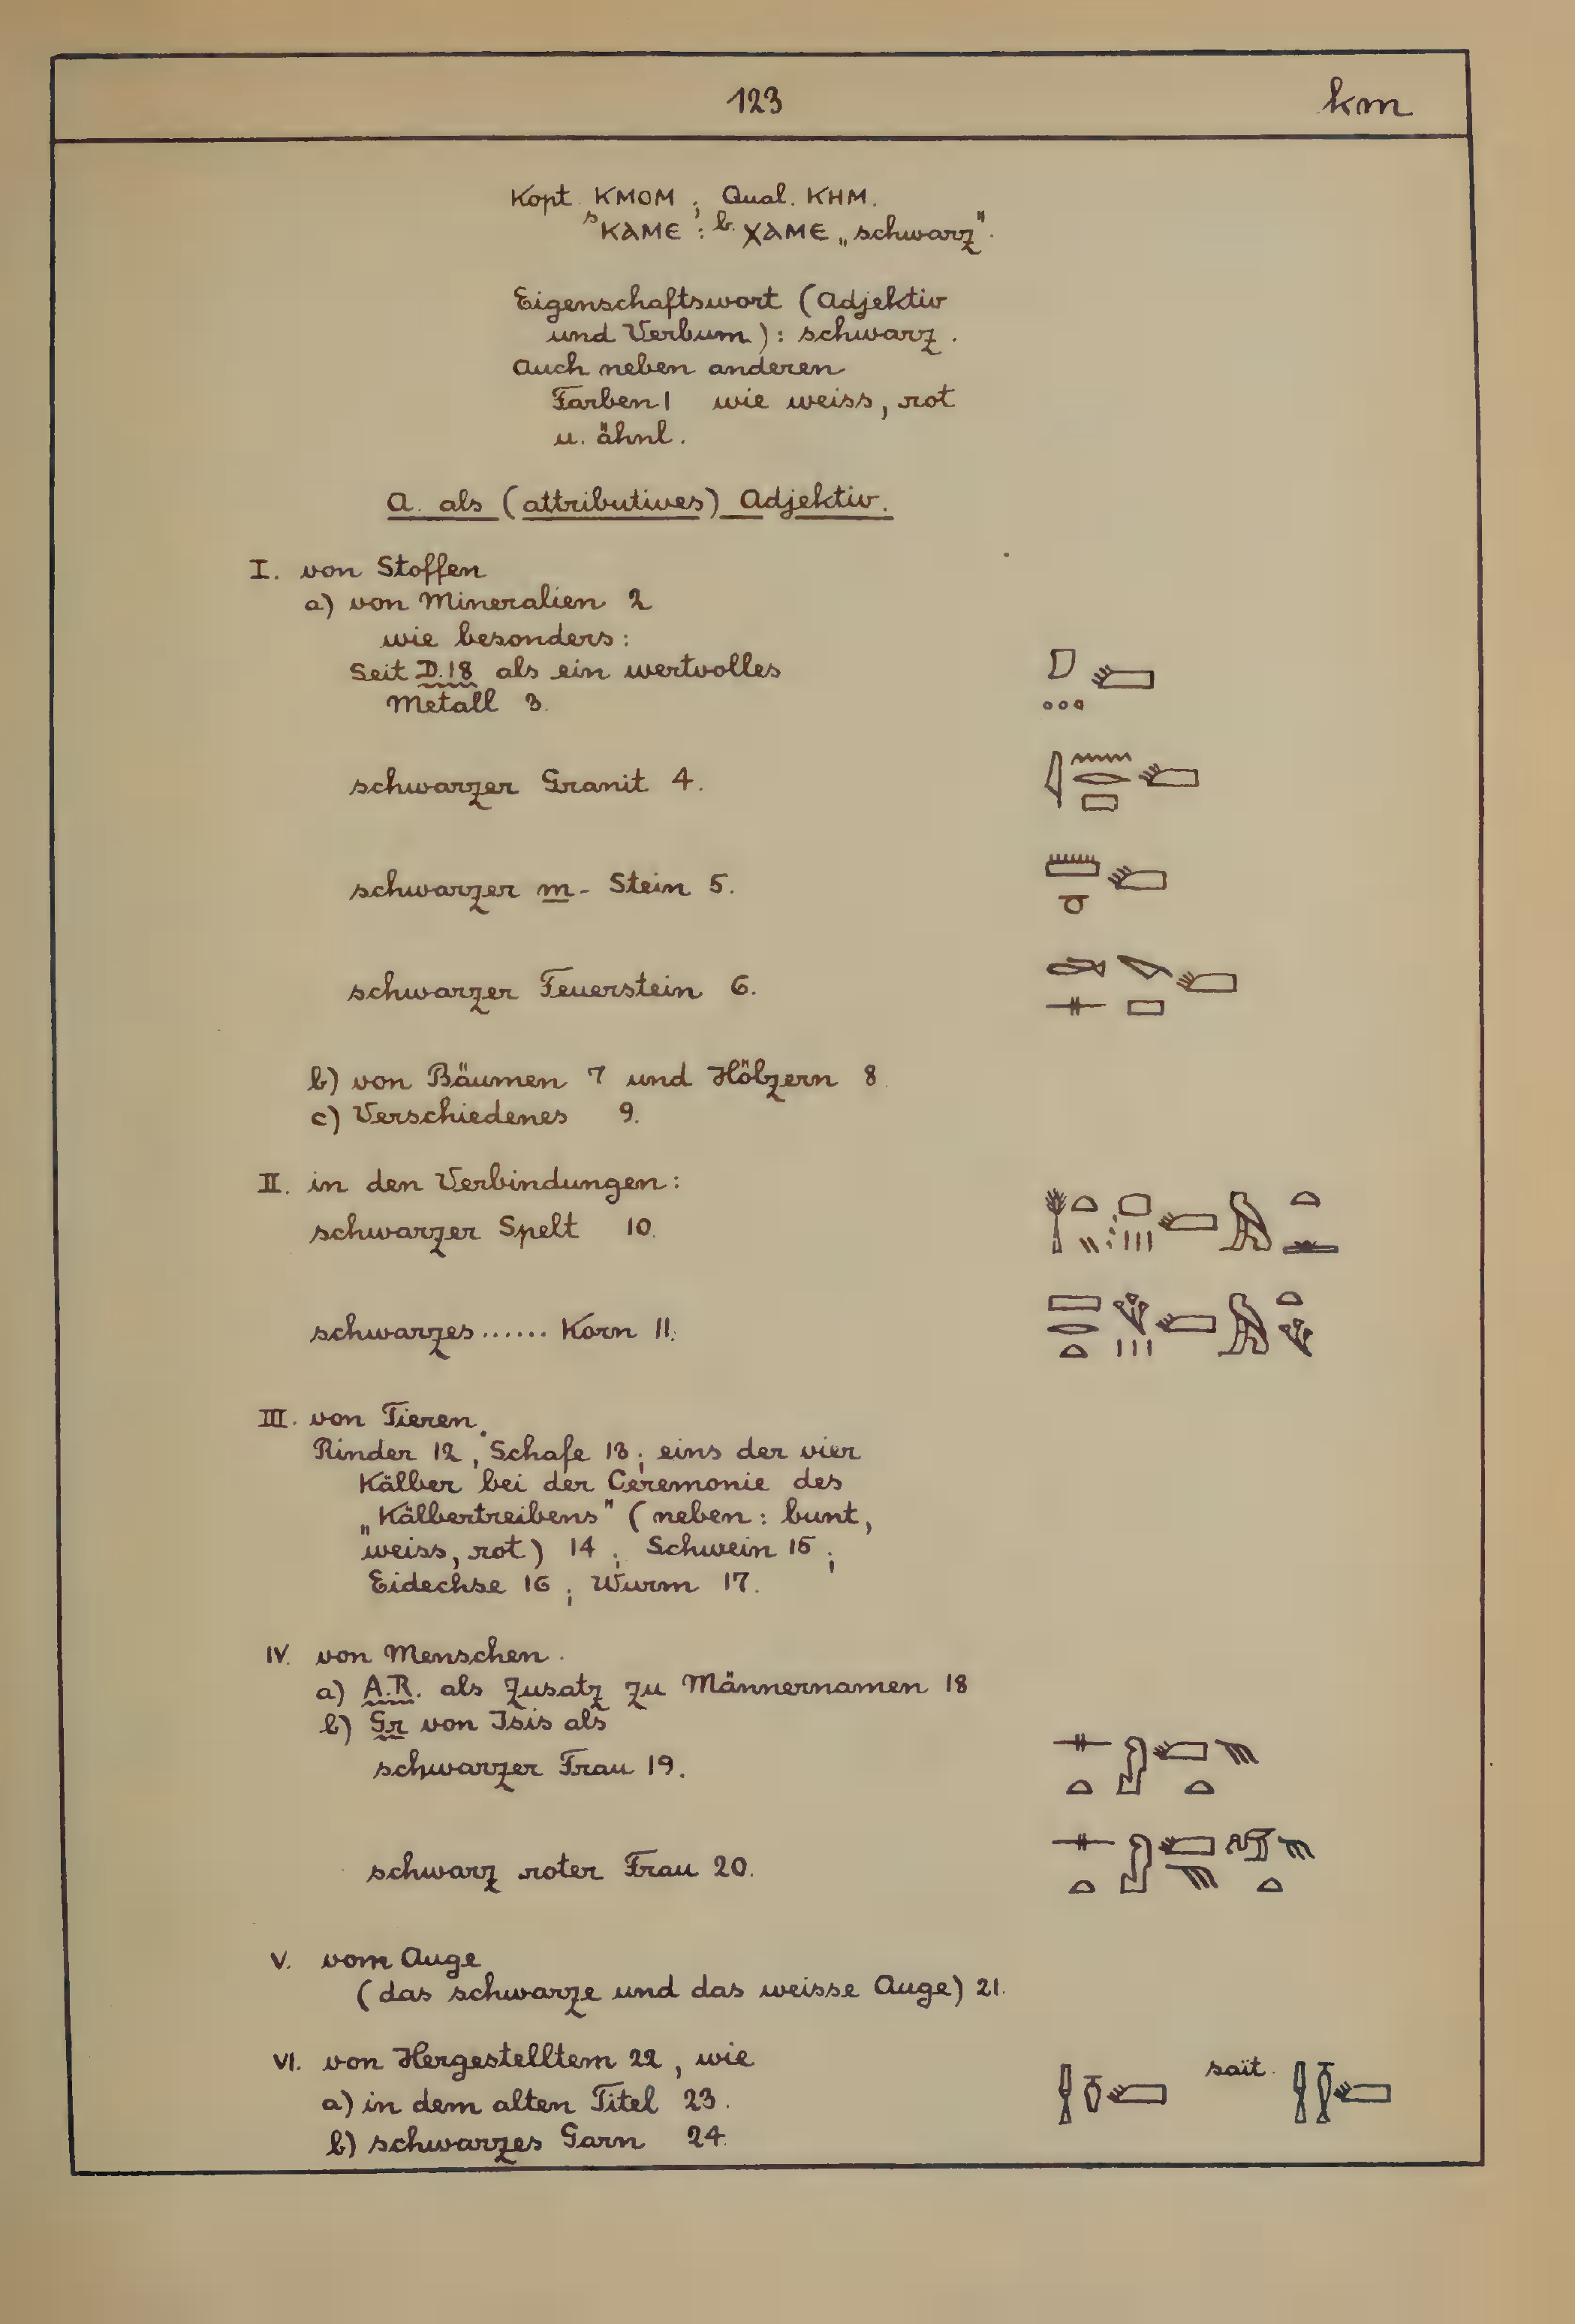 123 km
Kopt. ⲔⲘⲞⲘ ; Qual. ⲔⲎⲘ.
ˢⲔⲀⲘⲈ : ᵇ·ⲬⲀⲘⲈ „schwarz".
Eigenschaftswort (Adjektiv
und Verbum): schwarz.
Auch neben anderen
Farben 1 wie weiss, rot
u. ähnl.
A. als (attributives) Adjektiv.
I. von Stoffen
a) von Mineralien 2
wie besonders:
Seit D.18 als ein wertvolles
Metall 3.
schwarzer Granit 4.
schwarzer m- Stein 5.
schwarzer Feuerstein 6.
b) von Bäumen 7 und Hölzern 8.
c) Verschiedenes 9.
II. in den Verbindungen:
schwarzer Spelt 10.
schwarzes ...... Korn 11.
III. von Tieren.
Rinder 12, Schafe 13; eins der vier
Kälber bei der Ceremonie des
„Kälbertreibens" (neben: bunt,
weiss, rot) 14; Schwein 15;
Eidechse 16; Wurm 17.
IV. von Menschen.
a) A.R. als Zusatz zu Männernamen 18
b) Gr von Isis als
schwarzer Frau 19.
schwarz roter Frau 20.
V. vom Auge
(das schwarze und das weisse Auge) 21.
VI. von Hergestelltem 22, wie
a) in dem alten Titel 23. saït.
b) schwarzes Garn 24.